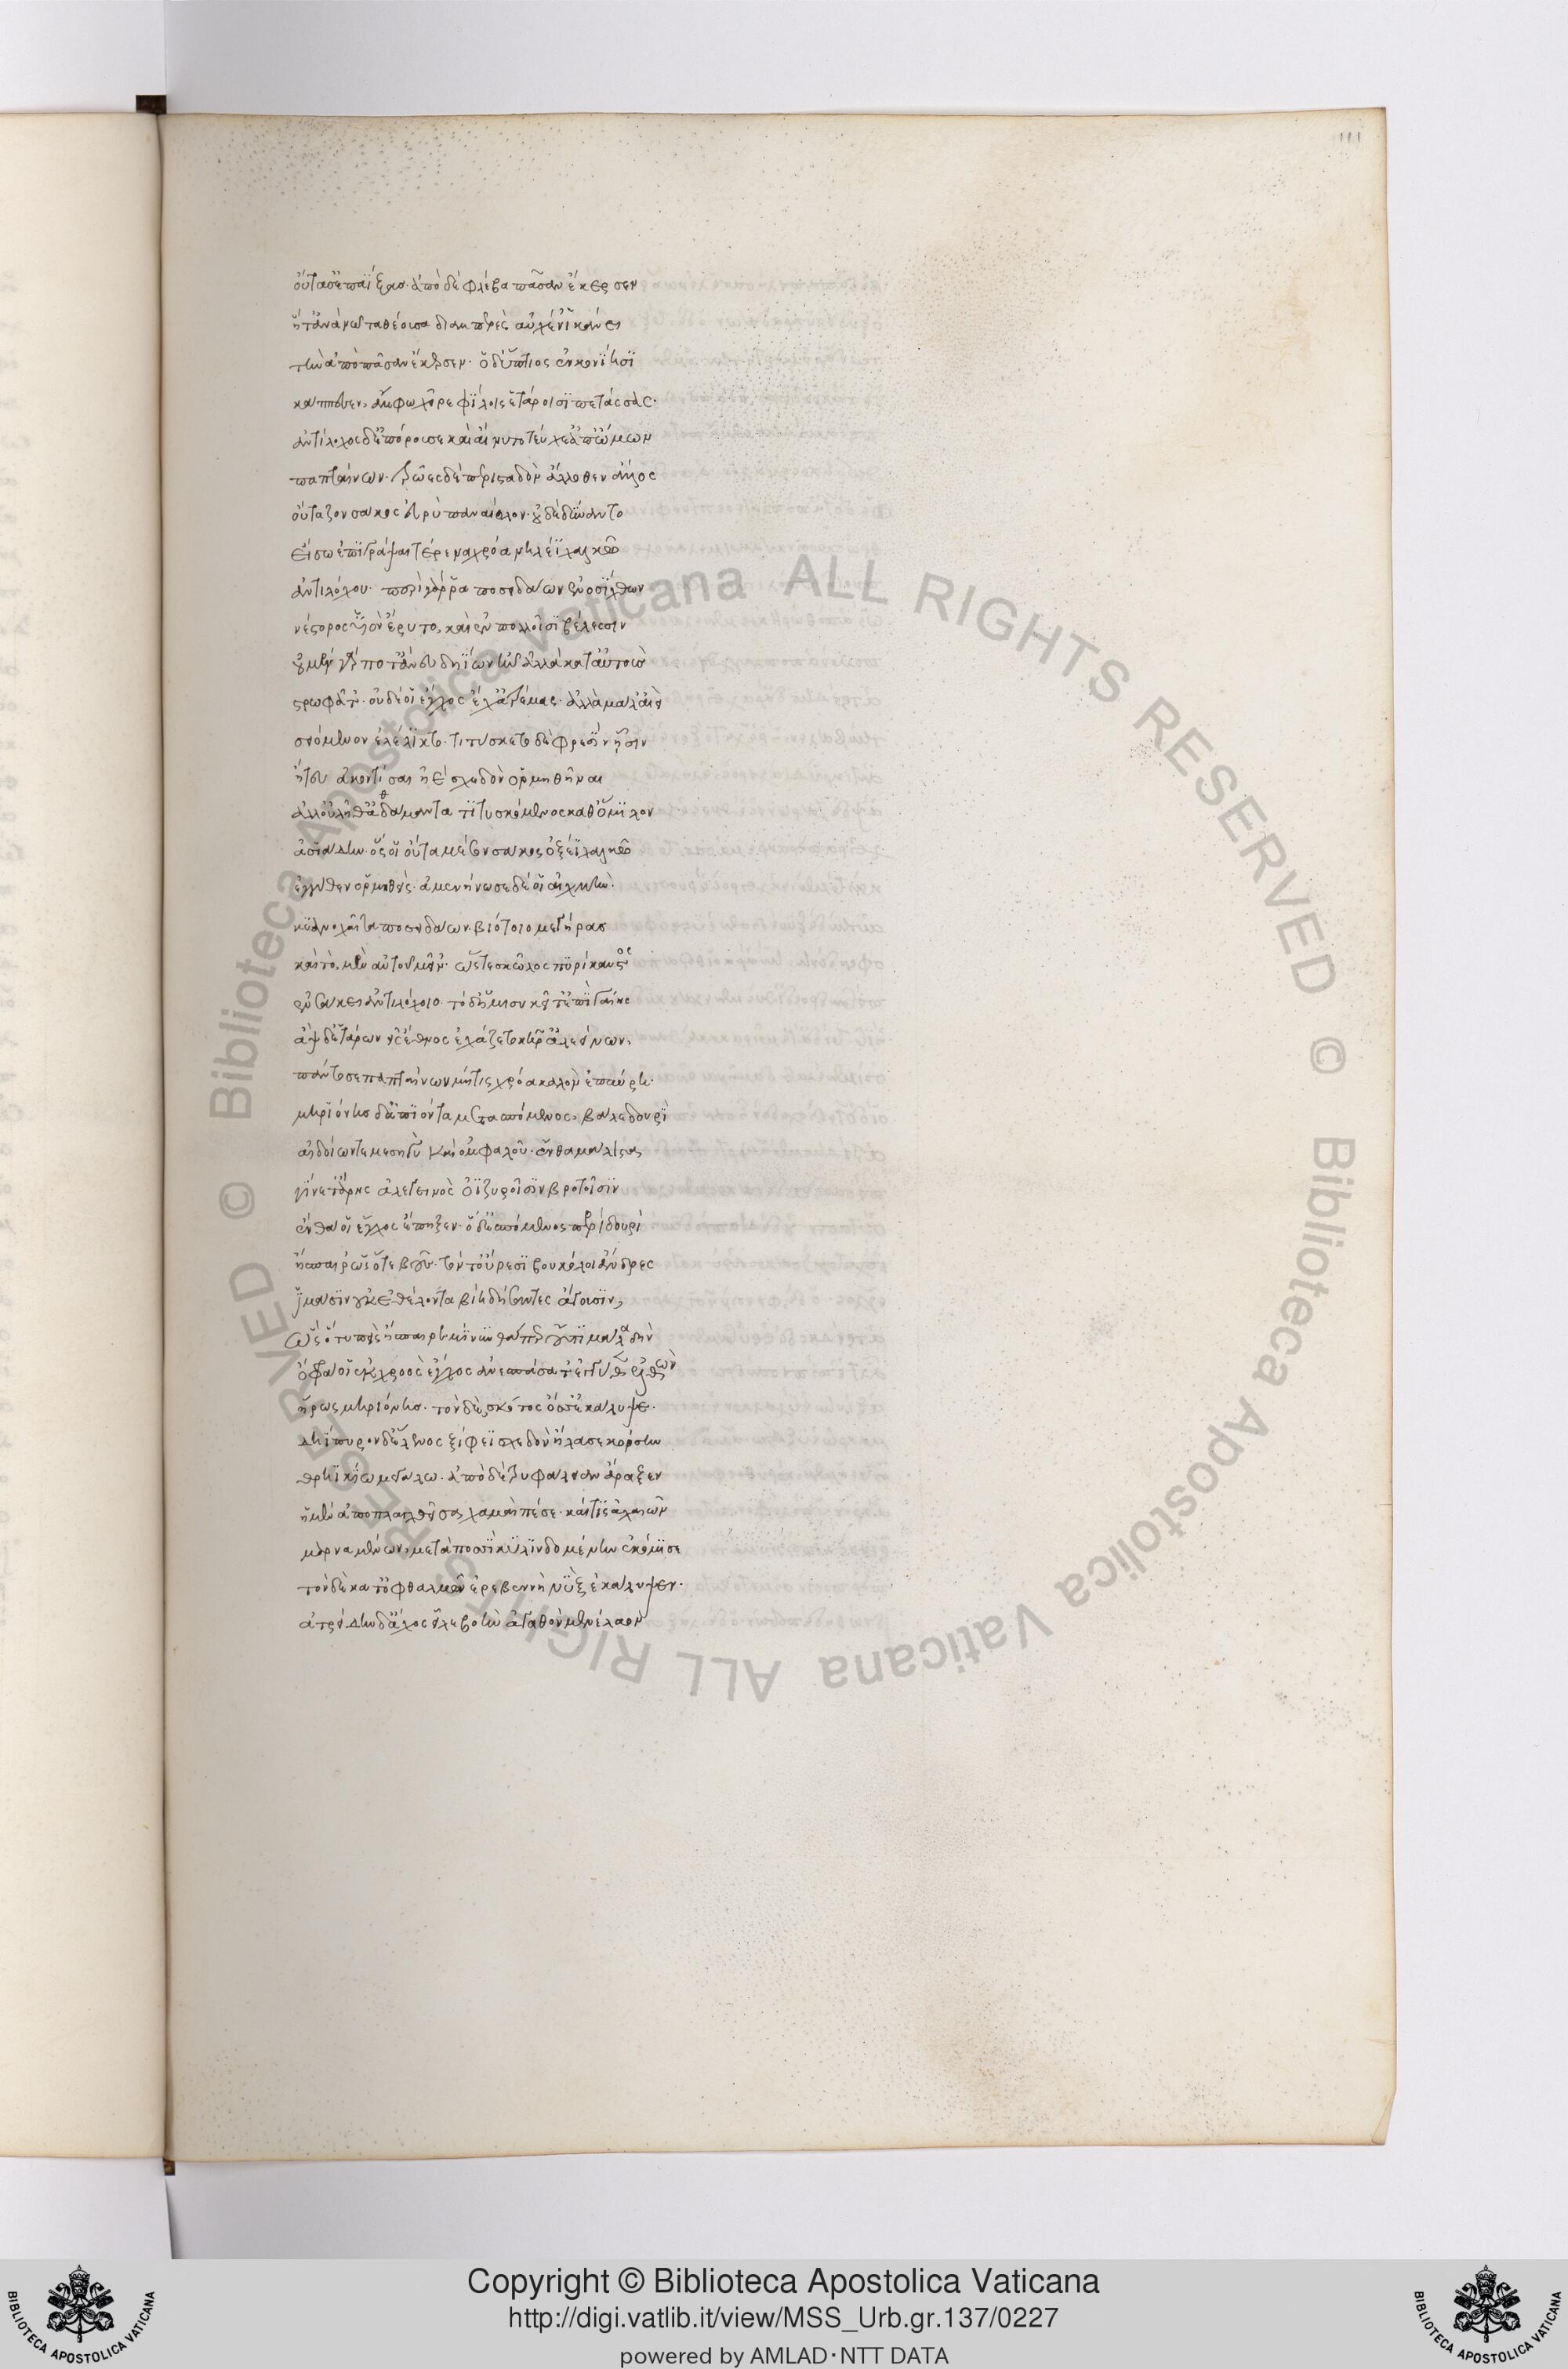 111
οὔτασ' ἐπαΐξας· ἀπὸ δὲ φλέβα πᾶσαν ἔκερσεν
ἥτ' ἀνὰ νῶτα θέουσα διαμπερὲς αὐχέν' ἱκάνει
τὴν ἀπὸ πᾶσαν ἔκερσεν· ὁ δ' ὕπτιος ἐν κονίῃσι
κάππεσεν, ἄμφω χεῖρε φίλοις ἑτάροισι πετάσσας·
ἀντίλοχος δ' ἐπόρουσε καὶ αἴνυτο τεύχε' ἀπ' ὤμων
παπταίνων· τρῶες δὲ περισταδὸν ἄλλοθεν ἄλλος
οὔταζον σάκος εὐρὺ παναίολον· οὐδὲ δύναντο
εἴσω ἐπιγράψαι τέρενα χρόα νηλέϊ χαλκῷ
ἀντιλόχου· περὶ γάρ ῥα ποσειδάων ἐνοσίχθων
νέστορος υἱὸν ἔρυτο, καὶ ἐν πολλοῖσι βέλεσσιν
οὐ μὲν γάρ ποτ' ἄνευ δηΐων ἦν ἀλλὰ κατ' αὐτοὺς
στρωφᾶτ'· οὐδέ οἱ ἔγχος ἔχ' ἀτρέμας· ἀλλὰ μάλ' αἰεὶ
σειόμενον ἐλέλικτο· τιτύσκετο δὲ φρεσὶν ᾗσιν
ἤ τευ ἀκοντίσαι ἠὲ σχεδὸν ὁρμηθῆναι
ἀλλ' οὐ λῆθ' ἀδάμαντα τιτυσκόμενος καθ' ὅμιλον
ἀσιάδην· ὅς οἱ οὖτα μέσον σάκος ὀξέϊ χαλκῷ
ἐγγύθεν ὁρμηθείς· ἀμενήνωσε δέ οἱ αἰχμὴν·
κυανοχαῖτα ποσειδάων· βιότοιο μεγήρας
καὶ τὸ μὲν αὐτοῦ μεῖν'· ὥστε σκῶλος πυρίκαυστος
ἐν σάκει ἀντιλόχοιο· τὸ δ' ἥμισυ κεῖτ' ἐπὶ γαίης
ἂψ δ' ἑτάρων εἰς ἔθνος ἐχάζετο κῆρ' ἀλεείνων,
πάντοσε παπταίνων μή τις χρόα καλὸν ἐπαύρῃ·
μηριόνης δ' ἀπιόντα μετασπόμενος, βάλε δουρὶ
αἰδοίων τε μεσηγὺ καὶ ὀμφαλοῦ· ἔνθα μάλιστα
γίνετ' ἄρης ἀλεγεινὸς ὀϊζυροῖσιν βροτοῖσιν
ἔνθα οἱ ἔγχος ἔπηξεν· ὁ δ' ἑσπόμενος περὶ δουρὶ
ἤσπαιρ' ὡς ὅτε βοῦς· τόν τ' οὔρεσι βουκόλοι ἄνδρες
ἰλλάσιν οὐκ ἐθέλοντα βίῃ δήσαντες ἄγουσιν,
ὣς ὁ τυπεὶς ἤσπαιρε μίνυνθά περ οὔτι μάλα δὴν
ὄφρα οἱ ἐκ χροὸς ἔγχος ἀνεσπάσατ' ἐγγύθεν ἐλθὼν
ἥρως μηριόνης· τὸν δὲ σκότος ὄσσε κάλυψε·
δηΐπυρον δ' ἕλενος ξίφεϊ σχεδὸν ἤλασε κόρσην
θρηϊκίῳ μεγάλῳ· ἀπὸ δὲ τρυφάλειαν ἄραξεν
ἡ μὲν ἀποπλαγχθεῖσα χαμαὶ πέσε· καί τις ἀχαιῶν
μαρναμένων, μετὰ ποσσὶ κυλινδομένην ἐκόμισσε
τὸν δὲ κατ' ὀφθαλμῶν ἐρεβεννὴ νὺξ ἐκάλυψεν·
ἀτρείδην δ' ἄχος εἷλε βοὴν ἀγαθὸν μενέλαον
Copyright © Biblioteca Apostolica Vaticana
http://digi.vatlib.it/view/MSS_Urb.gr.137/0227
powered by AMLAD·NTT DATA
BIBLIOTECA APOSTOLICA VATICANA
BIBLIOTECA APOSTOLICA VATICANA
© Biblioteca Apostolica Vaticana ALL RIGHTS RESERVED © Biblioteca Apostolica Vaticana ALL RIGHTS RESERVED